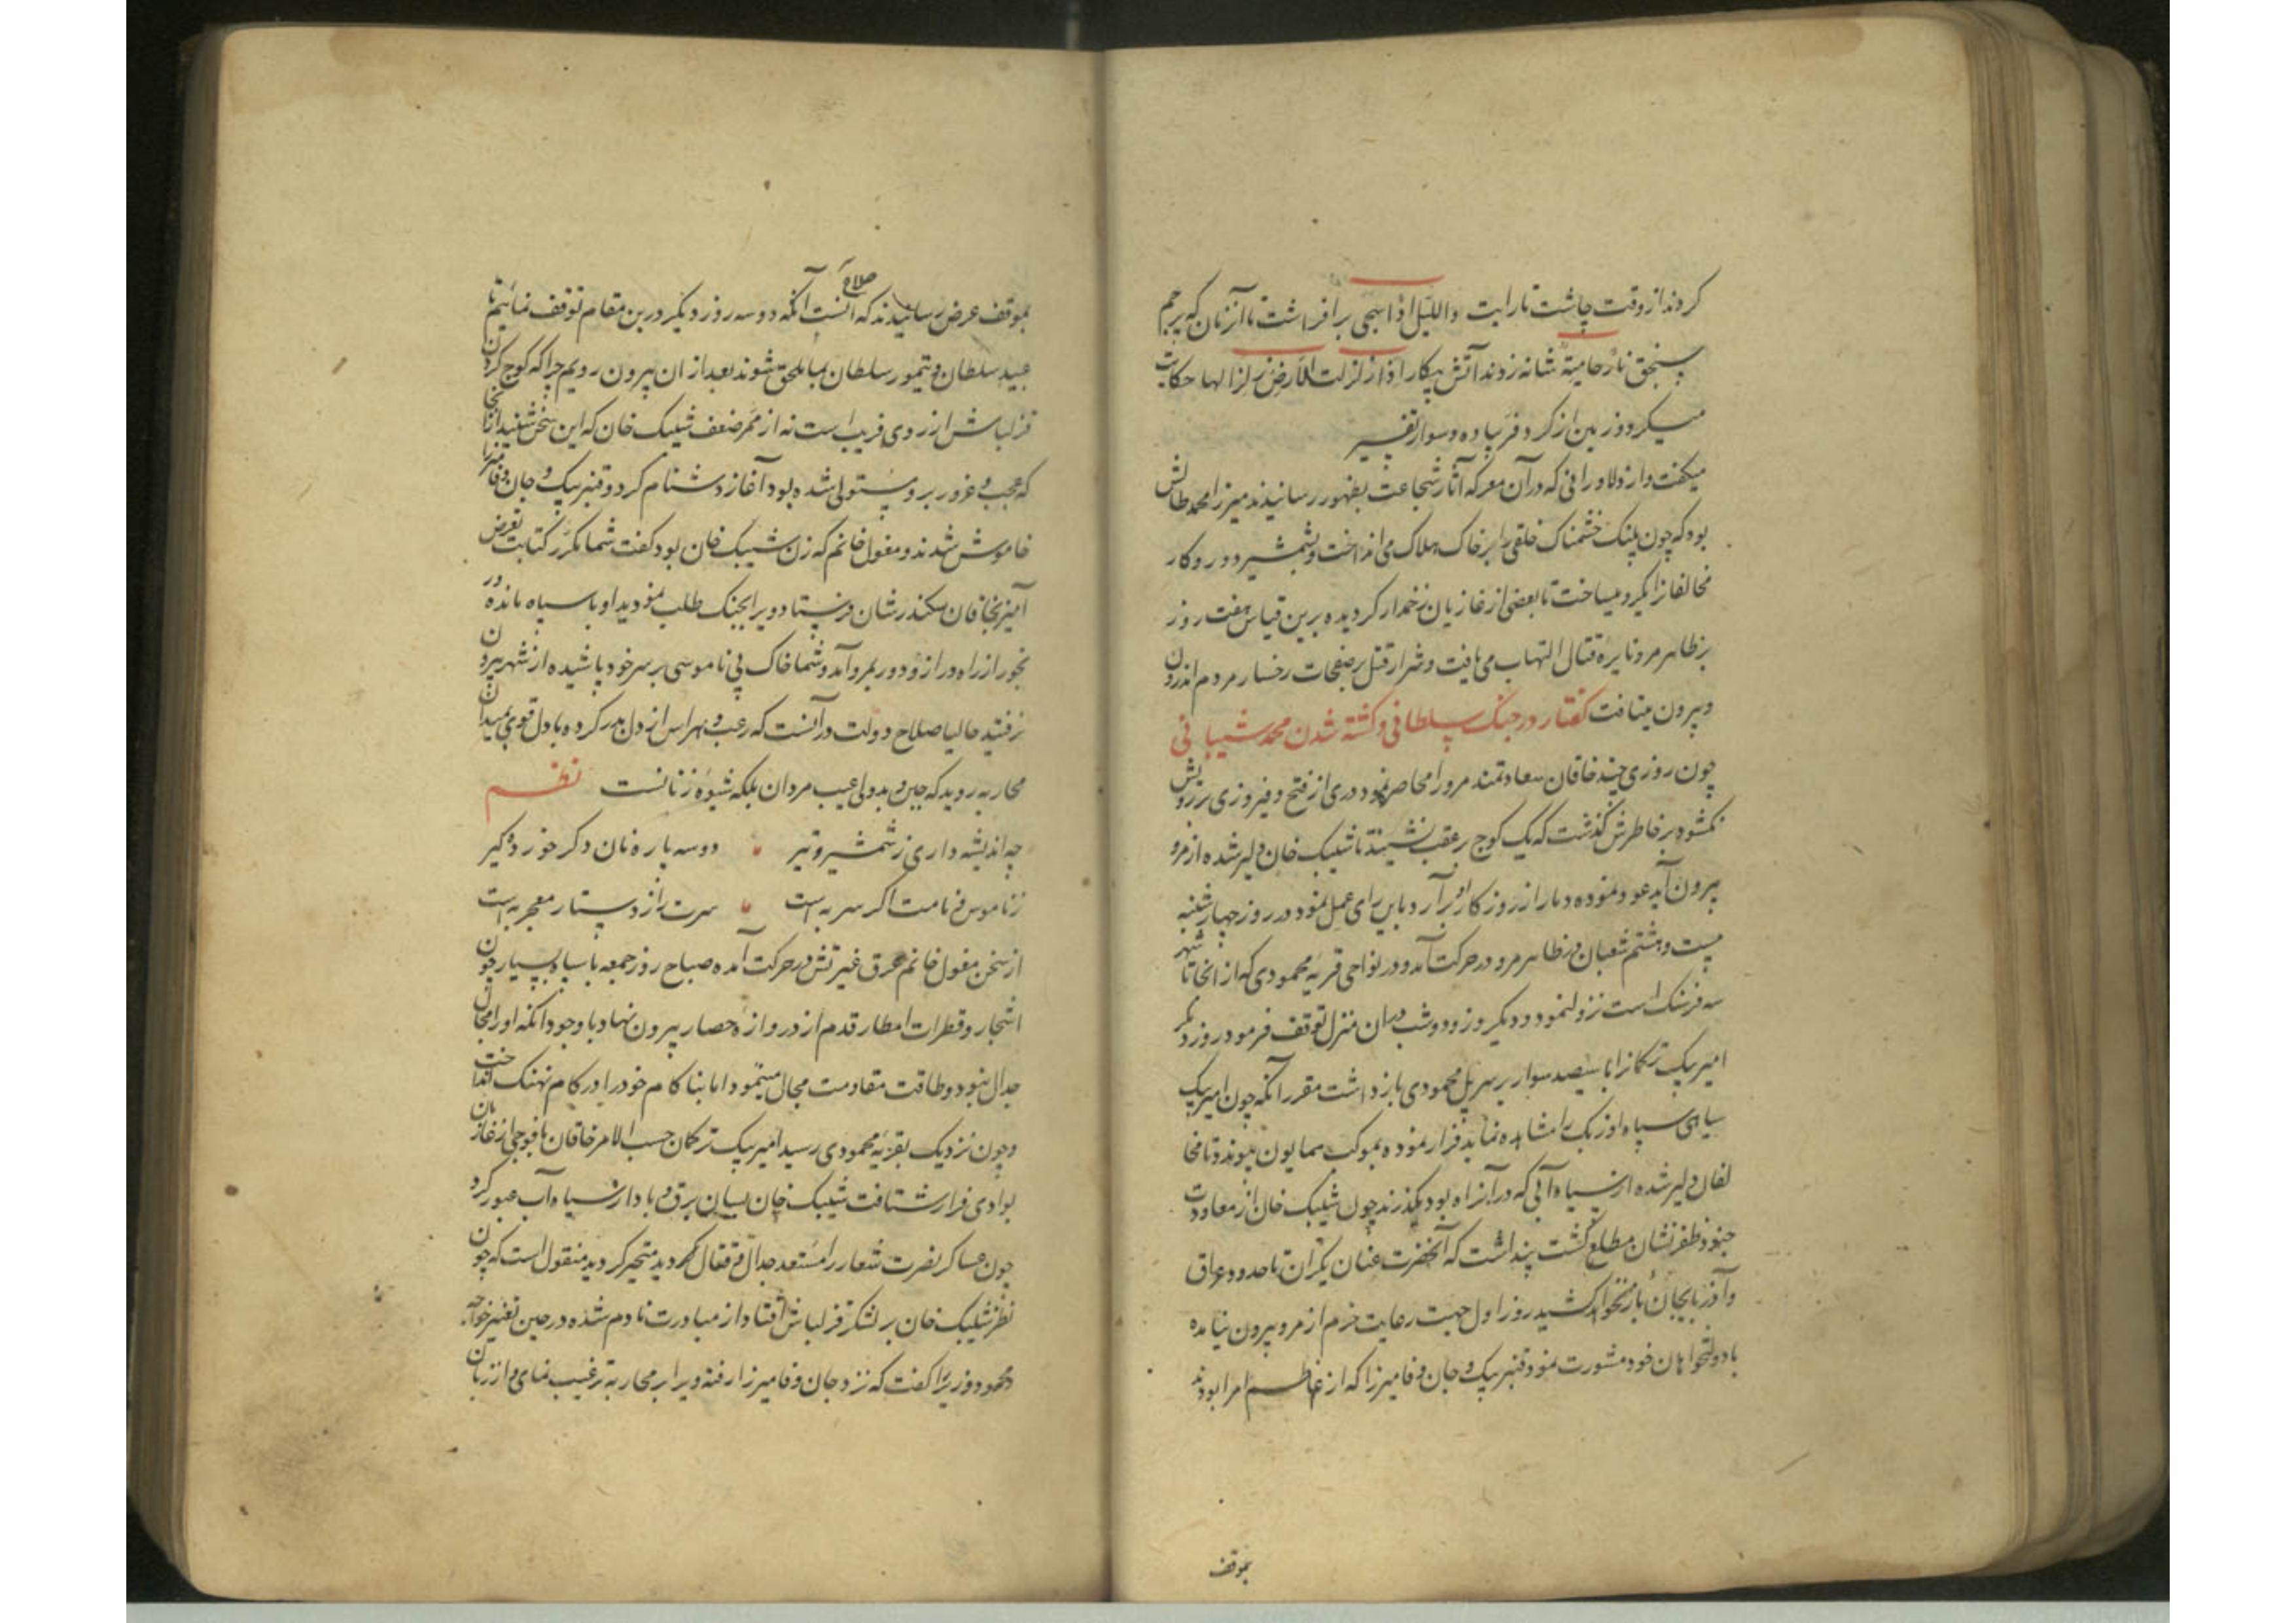 کردند از وقت چاشت تا رایت واللیل اذا سجی برافراشت تا آن زمان که پرچم
سنجق نار حامیة شانه زدند آتش پیکار اذا زلزلت الارض زلزالها حکایت
میکرد و زمین از کر و فر پیاده و سوار تفسیر
میکفت و از دلاورانی که در آن معرکه آثار شجاعت بظهور رسانیدند میرزا محمد طالش
بود که چون پلنک خشمناک خلقی را بر خاک هلاک می انداخت و بشمشیر دو رو کار
مخالفانرا یکرو میساخت تا بعضی از غازیان زخمدار کردیده برین قیاس هفت روز
بر ظاهر مرو نایره قتال التهاب می یافت و شرار قتل بر صفحات رخسار مردم اندرون
و بیرون میتافت کفتار در جنک سلطانی و کشته شدن محمد شیبانی
چون روزی چند خاقان سعادتمند مرو را محاصره نمود دری از فتح و فیروزی بر رویش
نکشود بر خاطرش کذشت که یک کوچ بر عقب نشیند تا شیبک خان دلیر شده از مرو
بیرون آید عود نموده دمار از روزکار او برآرد باین رای عمل نمود در روز چهارشنبه
بیست و هشتم شعبان از ظاهر مرو در حرکت آمد و در نواحی قریه محمودی که از آنجا تا شهر
سه فرسنک است نزول نمود و دیکر روز و دو شب در آن منزل توقف فرمود روز دیکر
امیر بیک ترکمانرا با سیصد سوار بر سر پل محمودی بازداشت مقرر آنکه چون امیر بیک
سیاهی سپاه اوزبک را مشاهده نماید فرار نموده بموکب همایون پیوندد تا مخا
لفان دلیر شده از سیاه آبی که در آن راه بود بکذرند چون شیبک خان از معاودت
جنود ظفرنشان مطلع کشت پنداشت که آنحضرت عنان یکران تا حدود عراق
و آذربایجان باز نخواهد کشید روز اول جهت رعایت حزم از مرو بیرون نیامده
با دولتخواهان خود مشورت نمود قنبر بیک و جان وفا میرزا که از اعاظم امرا بودند
بموقف
بموقف عرض رسانیدند که صلاح آنست آنکه دو سه روز دیکر درین مقام توقف نمائیم تا
عبید سلطان و تیمور سلطان بما ملحق شوند بعد از ان بیرون رویم چرا که کوچ کردن
قزلباش از روی فریب است نه از ممر ضعف شیبک خان که این سخن شنید از آنجا
که عجب و غرور بر وی مستولی شده بود آغاز دشنام کرد و قنبر بیک و جان وفا میرزا
خاموش شدند و مغول خانم که زن شیبک خان بود کفت شما مکرر کتابت تعرض
آمیز بخاقان سکندرشان فرستاد و ویرا بجنک طلب نمودید او با سپاه مانده و ر
نجور از راه دراز و دور بمرو آمد و شما خاک بی ناموسی بر سر خود پاشیده از شهر بیرون
نرفتید حالیا صلاح دولت در آنست که رعب و هراس از دل بدر کرده با دل قوی بمیدان
محاربه روید که جبن و بددلی عیب مردان بلکه شیوه زنانست نظم
چه اندیشه داری ز شمشیر و تیر دو سه پاره نان دکر خورده کیر
ز ناموس و نامت اکر سر به است سرت را ز دستار معجر به است
از سخن مغول خانم عرق غیرتش در حرکت آمده صباح روز جمعه با سپاه بسیار چون
اشجار و قطرات امطار قدم از دروازه حصار بیرون نهاد با وجود آنکه او را مجال
جدال نبود و طاقت مقاومت محال مینمود اما بناکام خود را در کام نهنک انداخت
و چون نزدیک بقریه محمودی رسید امیر بیک ترکمان حسب الامر خاقان با فوجی از غازیان
بوادی فرار شتافت شیبک خان بسان برق و باد از سیاه آب عبور کرد
چون عساکر نصرت شعار را مستعد جدال و قتال دید متحیر کردید منقول است که چون
نظر شیبک خان بر لشکر قزلباش افتاد از مبادرت نادم شده در حین تغیر خواجه
محمود وزیر را کفت که نزد جان وفا میرزا رفته ویرا بر محاربه ترغیب نمای و از زبان